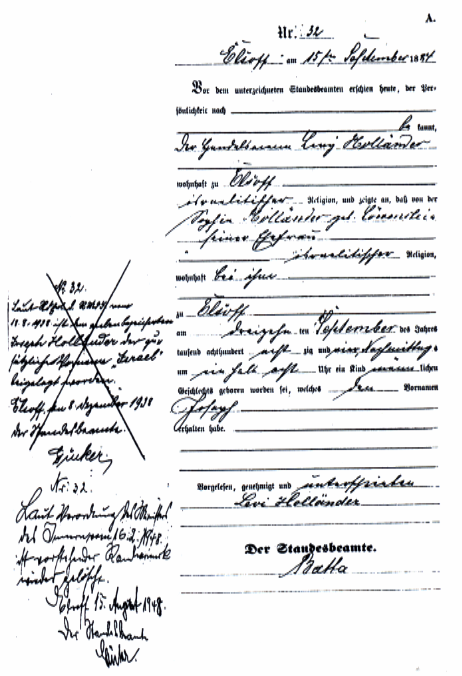 A.
Nr. 32
Elsoff am 15ten September 1884
Vor dem unterzeichneten Standesbeamten erschien heute, der Per-
sönlichkeit nach
be kannt,
der Handelsmann Levy Holländer
wohnhaft zu Elsoff
israelitischer Religion, und zeigte an, daß von der
Sophie Holländer geb. Löwenstein
seiner Ehefrau
israelitischer Religion,
wohnhaft bei ihm
zu Elsoff
am dreizehn ten September des Jahres
tausend achthundert acht zig und vier Nachmittags
um ein halb acht Uhr ein Kind männ lichen
Geschlechts geboren worden sei, welches den Vornamen
Joseph
erhalten habe.
Vorgelesen, genehmigt und unterschrieben
Levi Holländer
Der Standesbeamte.
Batta
No 32.
Laut vom
18.8.1938 ist dem nebenbezeichneten
Joseph Holländer der zu-
sätzliche Vorname "Israel"
beigelegt worden.
Elsoff, am 8. Dezember 1938
Der Standesbeamte.
Nr. 32.
Laut Verordnung des Ministers
des Innern vom 16.2.1948
ist vorstehender Randvermerk
wieder gelöscht.
Elsoff 15. August 1948.
Der Standesbeamte